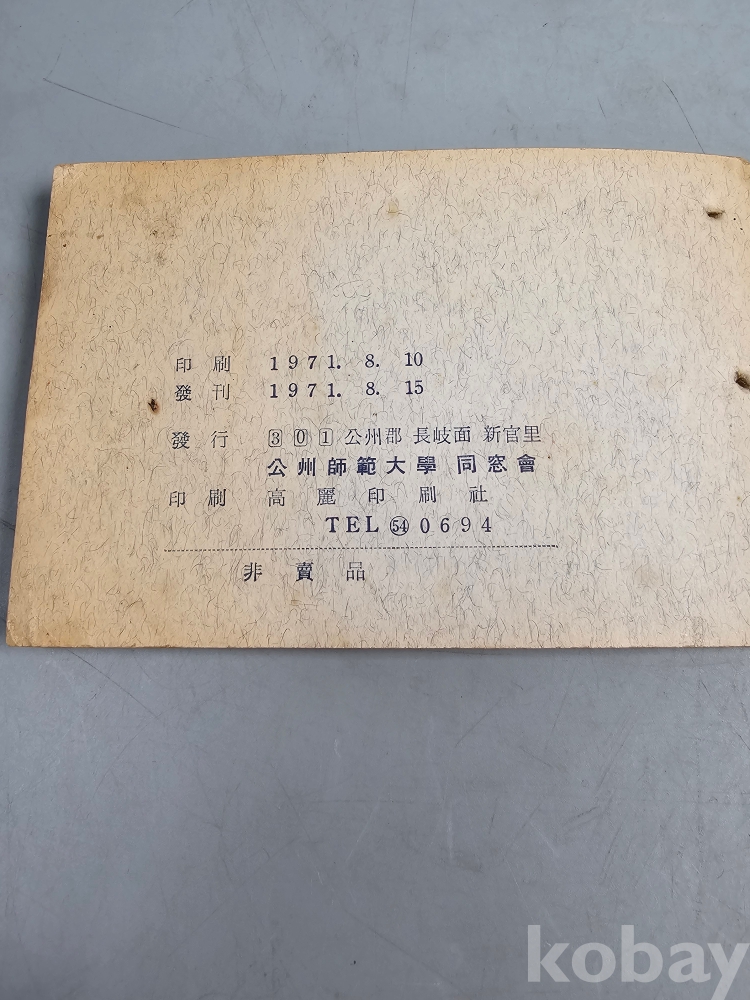 印刷 1971. 8. 10
發刊 1971. 8. 15
發行 301 公州郡 長岐面 新官里
公州師範大學 同窓會
印刷 高麗印刷社
TEL 54 0694
非賣品
kobay